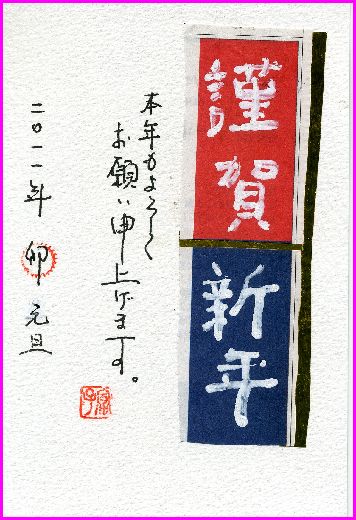 謹賀新年
本年もよろしく
お願い申し上げます。
二〇一一年 卯 元旦